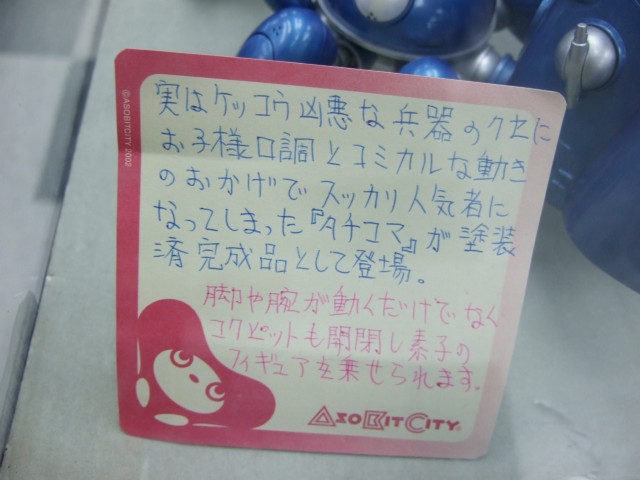 実はケッコウ凶悪な兵器のクセに
お子様口調とコミカルな動き
のおかげでスッカリ人気者に
なってしまった『タチコマ』が塗装
済完成品として登場。
脚や腕が動くだけでなく
コクピットも開閉し素子の
フィギュアを乗せられます。
ASOBITCITY
©ASOBITCITY 2002